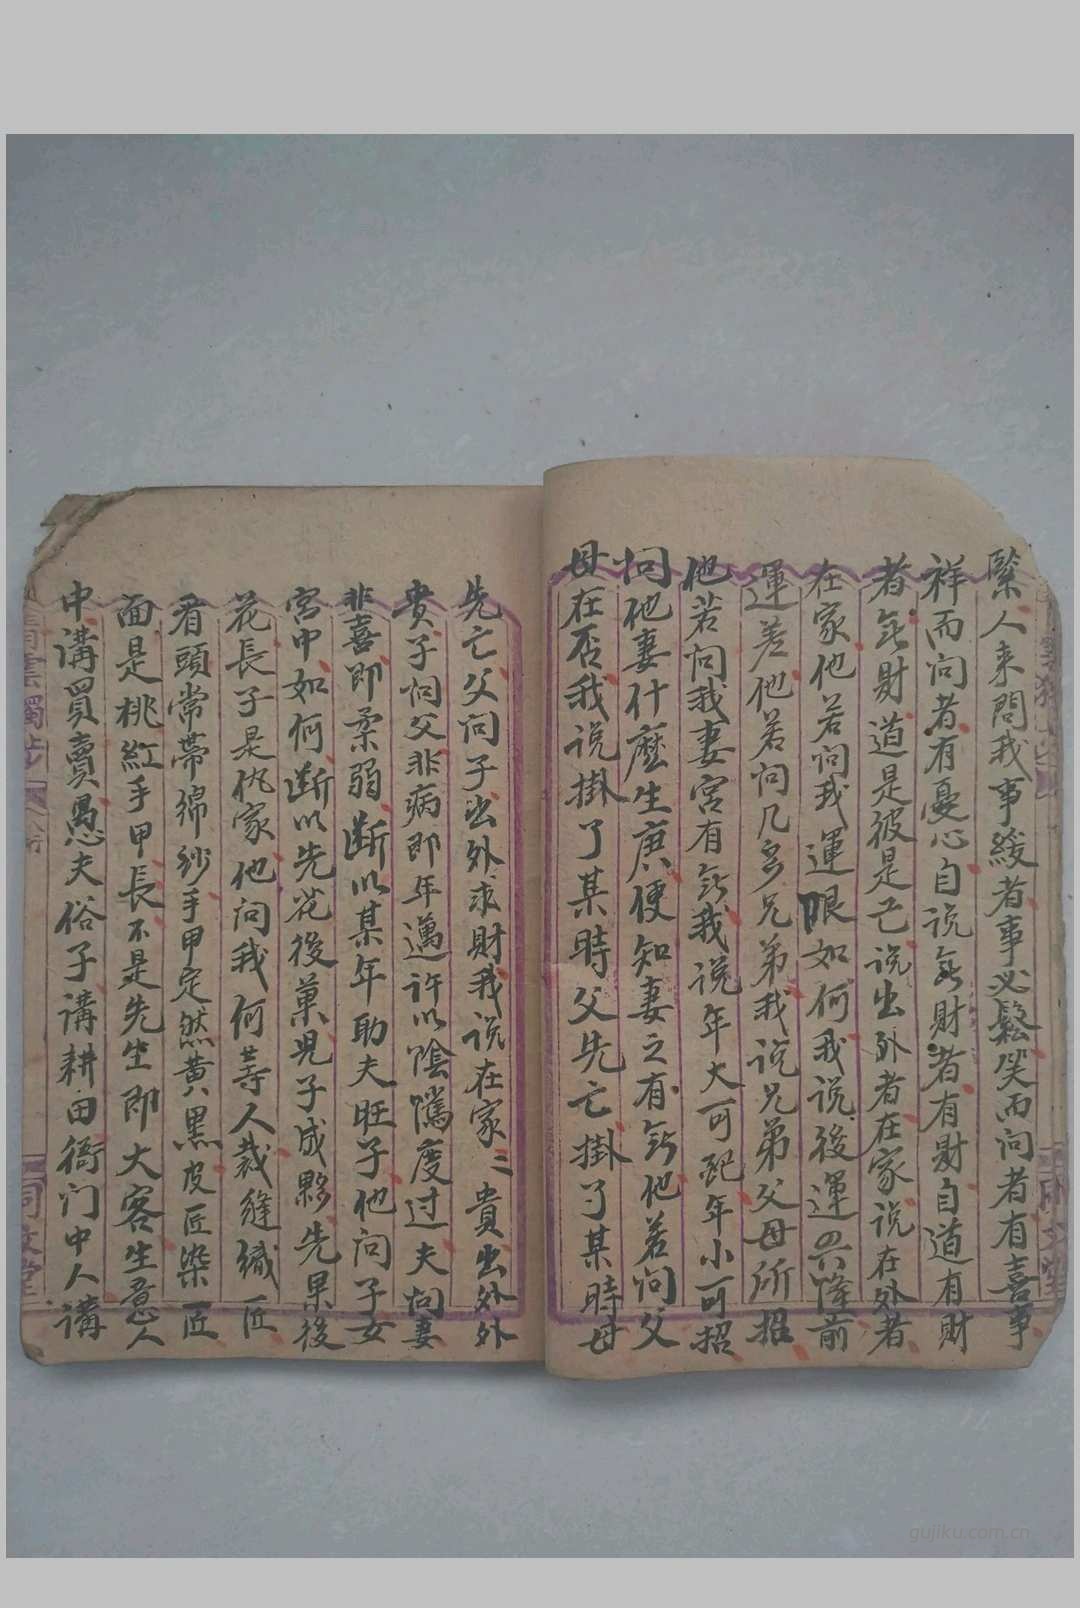 緊人来問我事緩者事必鬆笑而问者有喜事
祥而问者有憂心自说無財者有財自道有財
者無財道是彼是亡说出外者在家说在外者
在家他若问我運限如何我说後運兴隆前
運差他若问几多兄弟我说兄弟父母所招
他若问我妻宮有無我说年大可配年小可招
问他妻什麽生庚便知妻之有無他若问父
母在否我说掛了某時父先亡掛了某時母
先亡父问子出外求財我说在家三貴出外外
貴子问父非病即年邁许以陰隲度过夫问妻
非喜即柔弱断以某年助夫旺子他问子女
宮中如何断以先花後菓児子成夥先果後
花長子是仇家他问我何等人裁缝織匠
看頭常帯绵纱手甲定然黄黒皮匠染匠
面是桃紅手甲長不是先生即大客生意人
中講買賣愚夫俗子講耕田衙门中人講
青雲獨步
同文堂
gujiku.com.cn